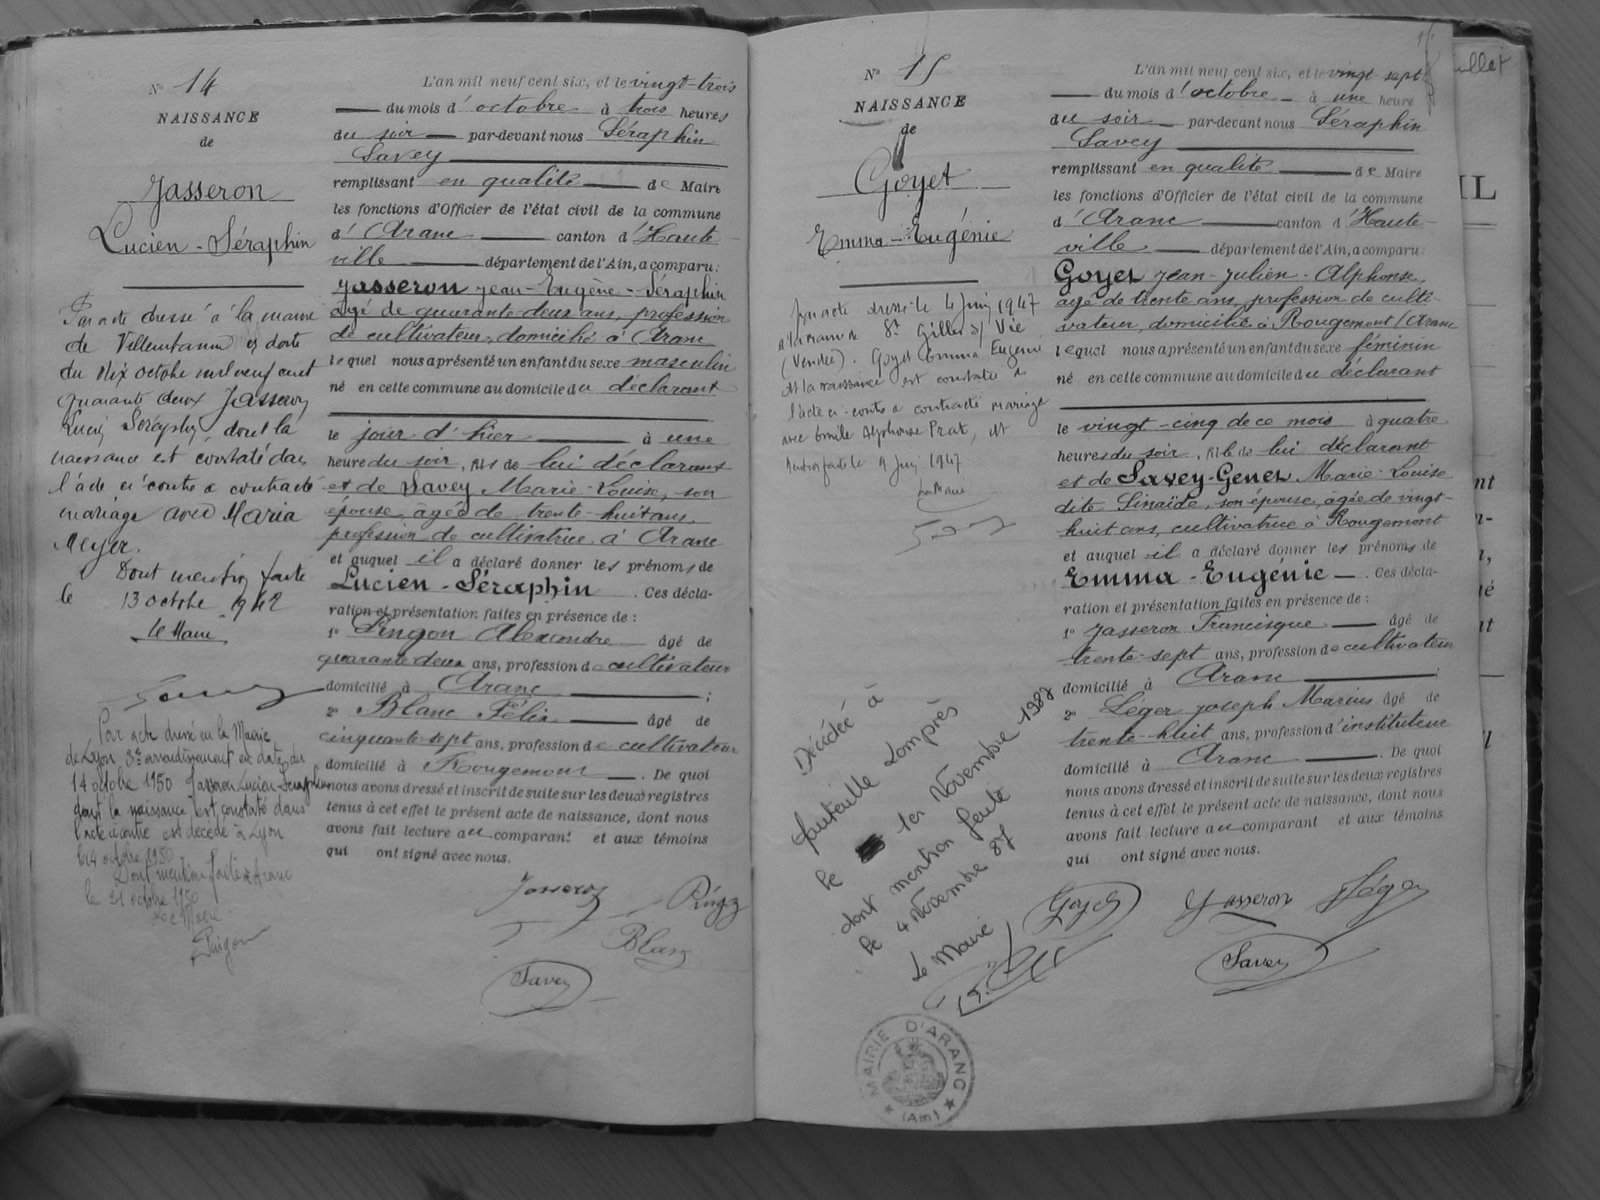 N° 14
NAISSANCE
de
Jasseron
Lucien-Séraphin
Par acte dressé à la mairie
de Villeurbanne en date
du dix octobre mil neuf cent
quarante deux Jasseron
Lucien Séraphin, dont la
naissance est constatée dans
l'acte ci-contre a contracté
mariage avec Maria
Meyer.
Dont mention faite
le 13 octobre 1942
Le Maire
Par acte dressé en la Mairie
de Lyon 3e arrondissement en date du
14 octobre 1950 Jasseron Lucien Séraphin
dont la naissance est constatée dans
l'acte ci-contre est décédé à Lyon
le 14 octobre 1950
Dont mention faite à Aranc
le 21 octobre 1950
Le Maire
L'an mil neuf cent six, et le vingt-trois
du mois d'octobre à trois heures
du soir par-devant nous Séraphin
Savey
remplissant en qualité de Maire
les fonctions d'Officier de l'état civil de la commune
d'Aranc canton d'Haute-
ville département de l'Ain, a comparu:
Jasseron Jean-Eugène-Séraphin
âgé de quarante-deux ans, profession
de cultivateur, domicilié à Aranc
lequel nous a présenté un enfant du sexe masculin
né en cette commune au domicile du déclarant
le jour d'hier à une
heure du soir, fils de lui déclarant
et de Savey Marie-Louise, son
épouse, âgée de trente-huit ans,
profession de cultivatrice à Aranc
et auquel il a déclaré donner les prénoms de
Lucien-Séraphin. Ces décla-
ration et présentation faites en présence de:
1° Pingon Alexandre âgé de
quarante deux ans, profession de cultivateur
domicilié à Aranc ;
2° Blanc Félix âgé de
cinquante-sept ans, profession de cultivateur
domicilié à Rougemont. De quoi
nous avons dressé et inscrit de suite sur les deux registres
tenus à cet effet le présent acte de naissance, dont nous
avons fait lecture au comparant et aux témoins
qui ont signé avec nous.
Jasseron
Blanc
Savey
N° 15
NAISSANCE
de
Goyet
Emma-Eugénie
Par acte dressé le 4 Juin 1947
à la mairie de St Gilles s/ Vie
(Vendée). Goyet Emma Eugénie
dont la naissance est constatée à
l'acte ci-contre a contracté mariage
avec Emile Alphonse Prat, dt
mention faite le 9 Juin 1947
Le Maire
Décédée à
Hauteville Lompnès
le 1er Novembre 1987
dont mention faite
le 4 Novembre 87
Le Maire
MAIRIE D'ARANC
(Ain)
L'an mil neuf cent six, et le vingt sept
du mois d'octobre à une heure
du soir par-devant nous Séraphin
Savey
remplissant en qualité de Maire
les fonctions d'Officier de l'état civil de la commune
d'Aranc canton d'Haute-
ville département de l'Ain, a comparu:
Goyet Jean-Julien-Alphonse,
âgé de trente ans, profession de culti-
vateur, domicilié à Rougemont/Aranc
lequel nous a présenté un enfant du sexe féminin
né en cette commune au domicile du déclarant
le vingt-cinq de ce mois à quatre
heures du soir, fille de lui déclarant
et de Savey-Genet Marie-Louise
dite Sinaïde, son épouse, âgée de vingt-
huit ans, cultivatrice à Rougemont
et auquel il a déclaré donner les prénoms de
Emma-Eugénie. Ces décla-
ration et présentation faites en présence de:
1° Jasseron Francisque âgé de
trente-sept ans, profession de cultivateur
domicilié à Aranc ;
2° Léger Joseph Marius âgé de
trente-huit ans, profession d'instituteur
domicilié à Aranc. De quoi
nous avons dressé et inscrit de suite sur les deux registres
tenus à cet effet le présent acte de naissance, dont nous
avons fait lecture au comparant et aux témoins
qui ont signé avec nous.
Goyet Jasseron Léger
Savey